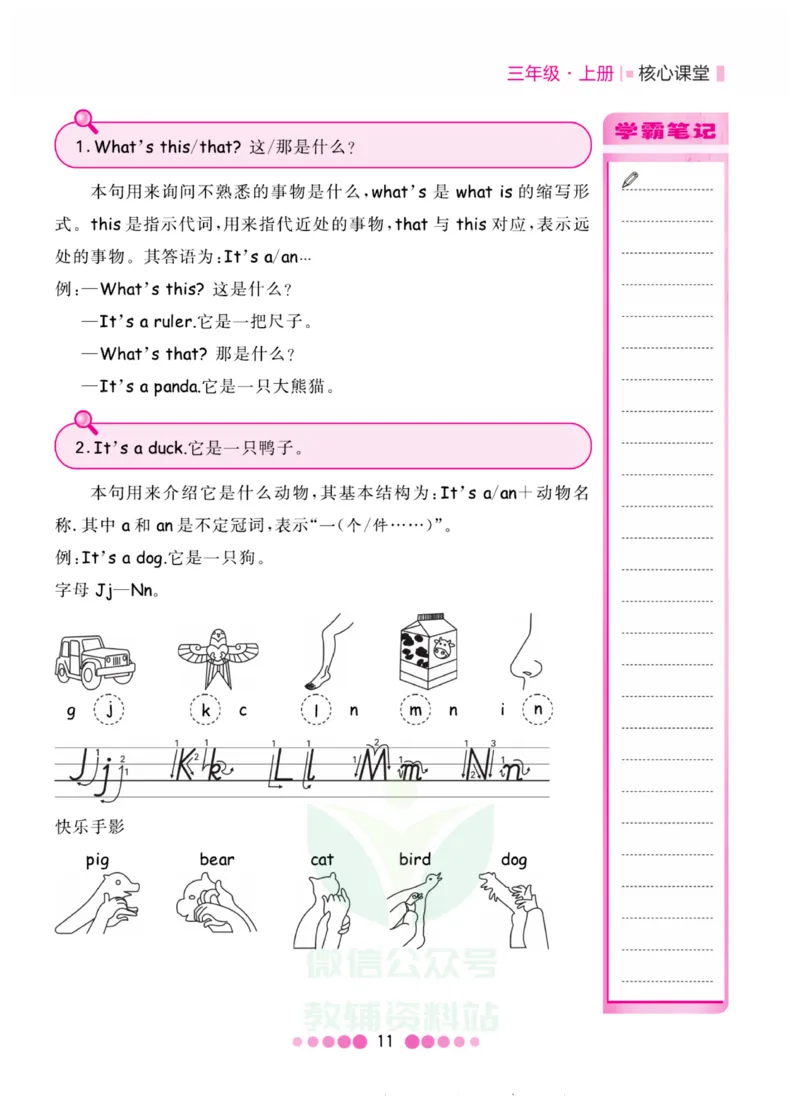 三年级·上册 核心课堂
学霸笔记
1. What's this/that? 这/那是什么?
本句用来询问不熟悉的事物是什么,what's 是 what is 的缩写形
式。this 是指示代词,用来指代近处的事物,that 与 this 对应,表示远
处的事物。其答语为:It's a/an…
例:—What's this? 这是什么?
—It's a ruler.它是一把尺子。
—What's that? 那是什么?
—It's a panda.它是一只大熊猫。
2. It's a duck.它是一只鸭子。
本句用来介绍它是什么动物,其基本结构为:It's a/an+动物名
称.其中 a 和 an 是不定冠词,表示“一(个/件……)”。
例:It's a dog.它是一只狗。
字母 Jj—Nn。
g j k c l n m n i n
Jj Kk Ll Mm Nn
快乐手影
pig bear cat bird dog
微信公众号
教辅资料站
11